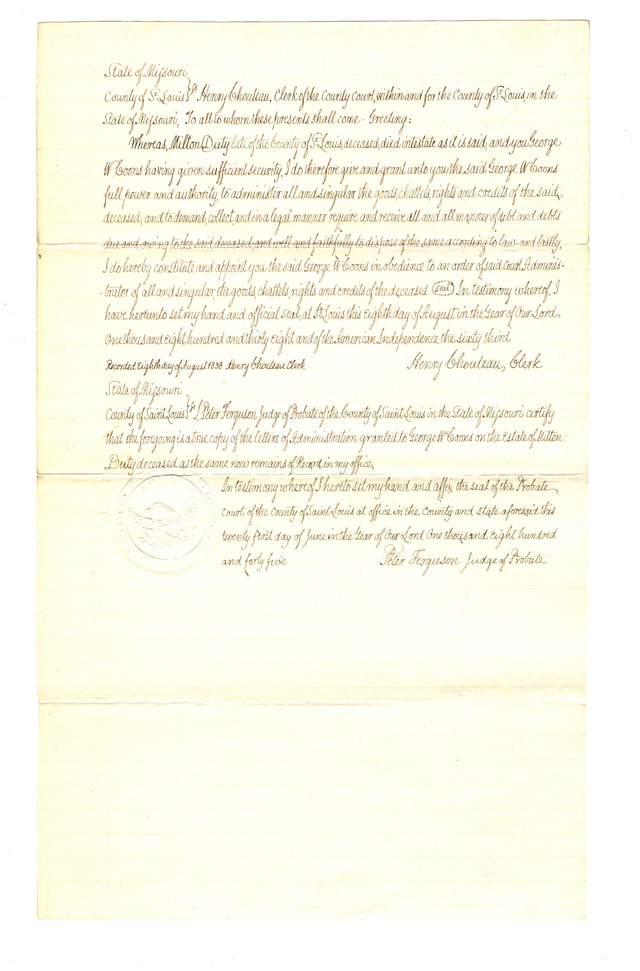 State of Missouri
County of St Louis } ss Henry Chouteau, Clerk of the County Court, within and for the County of St Louis, in the
State of Missouri, To all to whom these presents shall come - Greeting:
Whereas, Milton Duty late of the County of St Louis deceased, died intestate as it is said, and you George
W Coons having given sufficient security, I do therefore give and grant unto you the said George W Coons
full power and authority, to administer all and singular the goods, chattels, rights and credits of the said,
deceased, and to demand, collect, and in a legal manner require and receive all and all manner of debt and debts
due and owing to the said deceased, and well and faithfully to dispose of the same according to law. and lastly,
I do hereby constitute and appoint you the said George W Coons in obedience to an order of said Court, Adminis-
-trator of all and singular, the goods, chattels, rights and credits of the deceased (Seal) In testimony whereof, I
have hereunto set my hand and official seal, at St Louis this Eighth day of August in the Year of Our Lord,
One thousand Eight hundred and thirty Eight and of the American Independence, the sixty third
Recorded Eighth day of August 1838 Henry Chouteau Clerk
Henry Chouteau, Clerk
State of Missouri
County of Saint Louis } ss I Peter Ferguson Judge of Probate of the County of Saint Louis in the State of Missouri certify
that the foregoing is a true copy of the letters of Administration granted to George W Coons on the Estate of Milton
Duty deceased as the same now remains of Record in my office,
In testimony whereof I hereto set my hand and affix the seal of the Probate
court of the County of Saint Louis at office in the County and state aforesaid this
twenty first day of June in the Year of Our Lord One thousand Eight hundred
and forty five
Peter Ferguson Judge of Probate